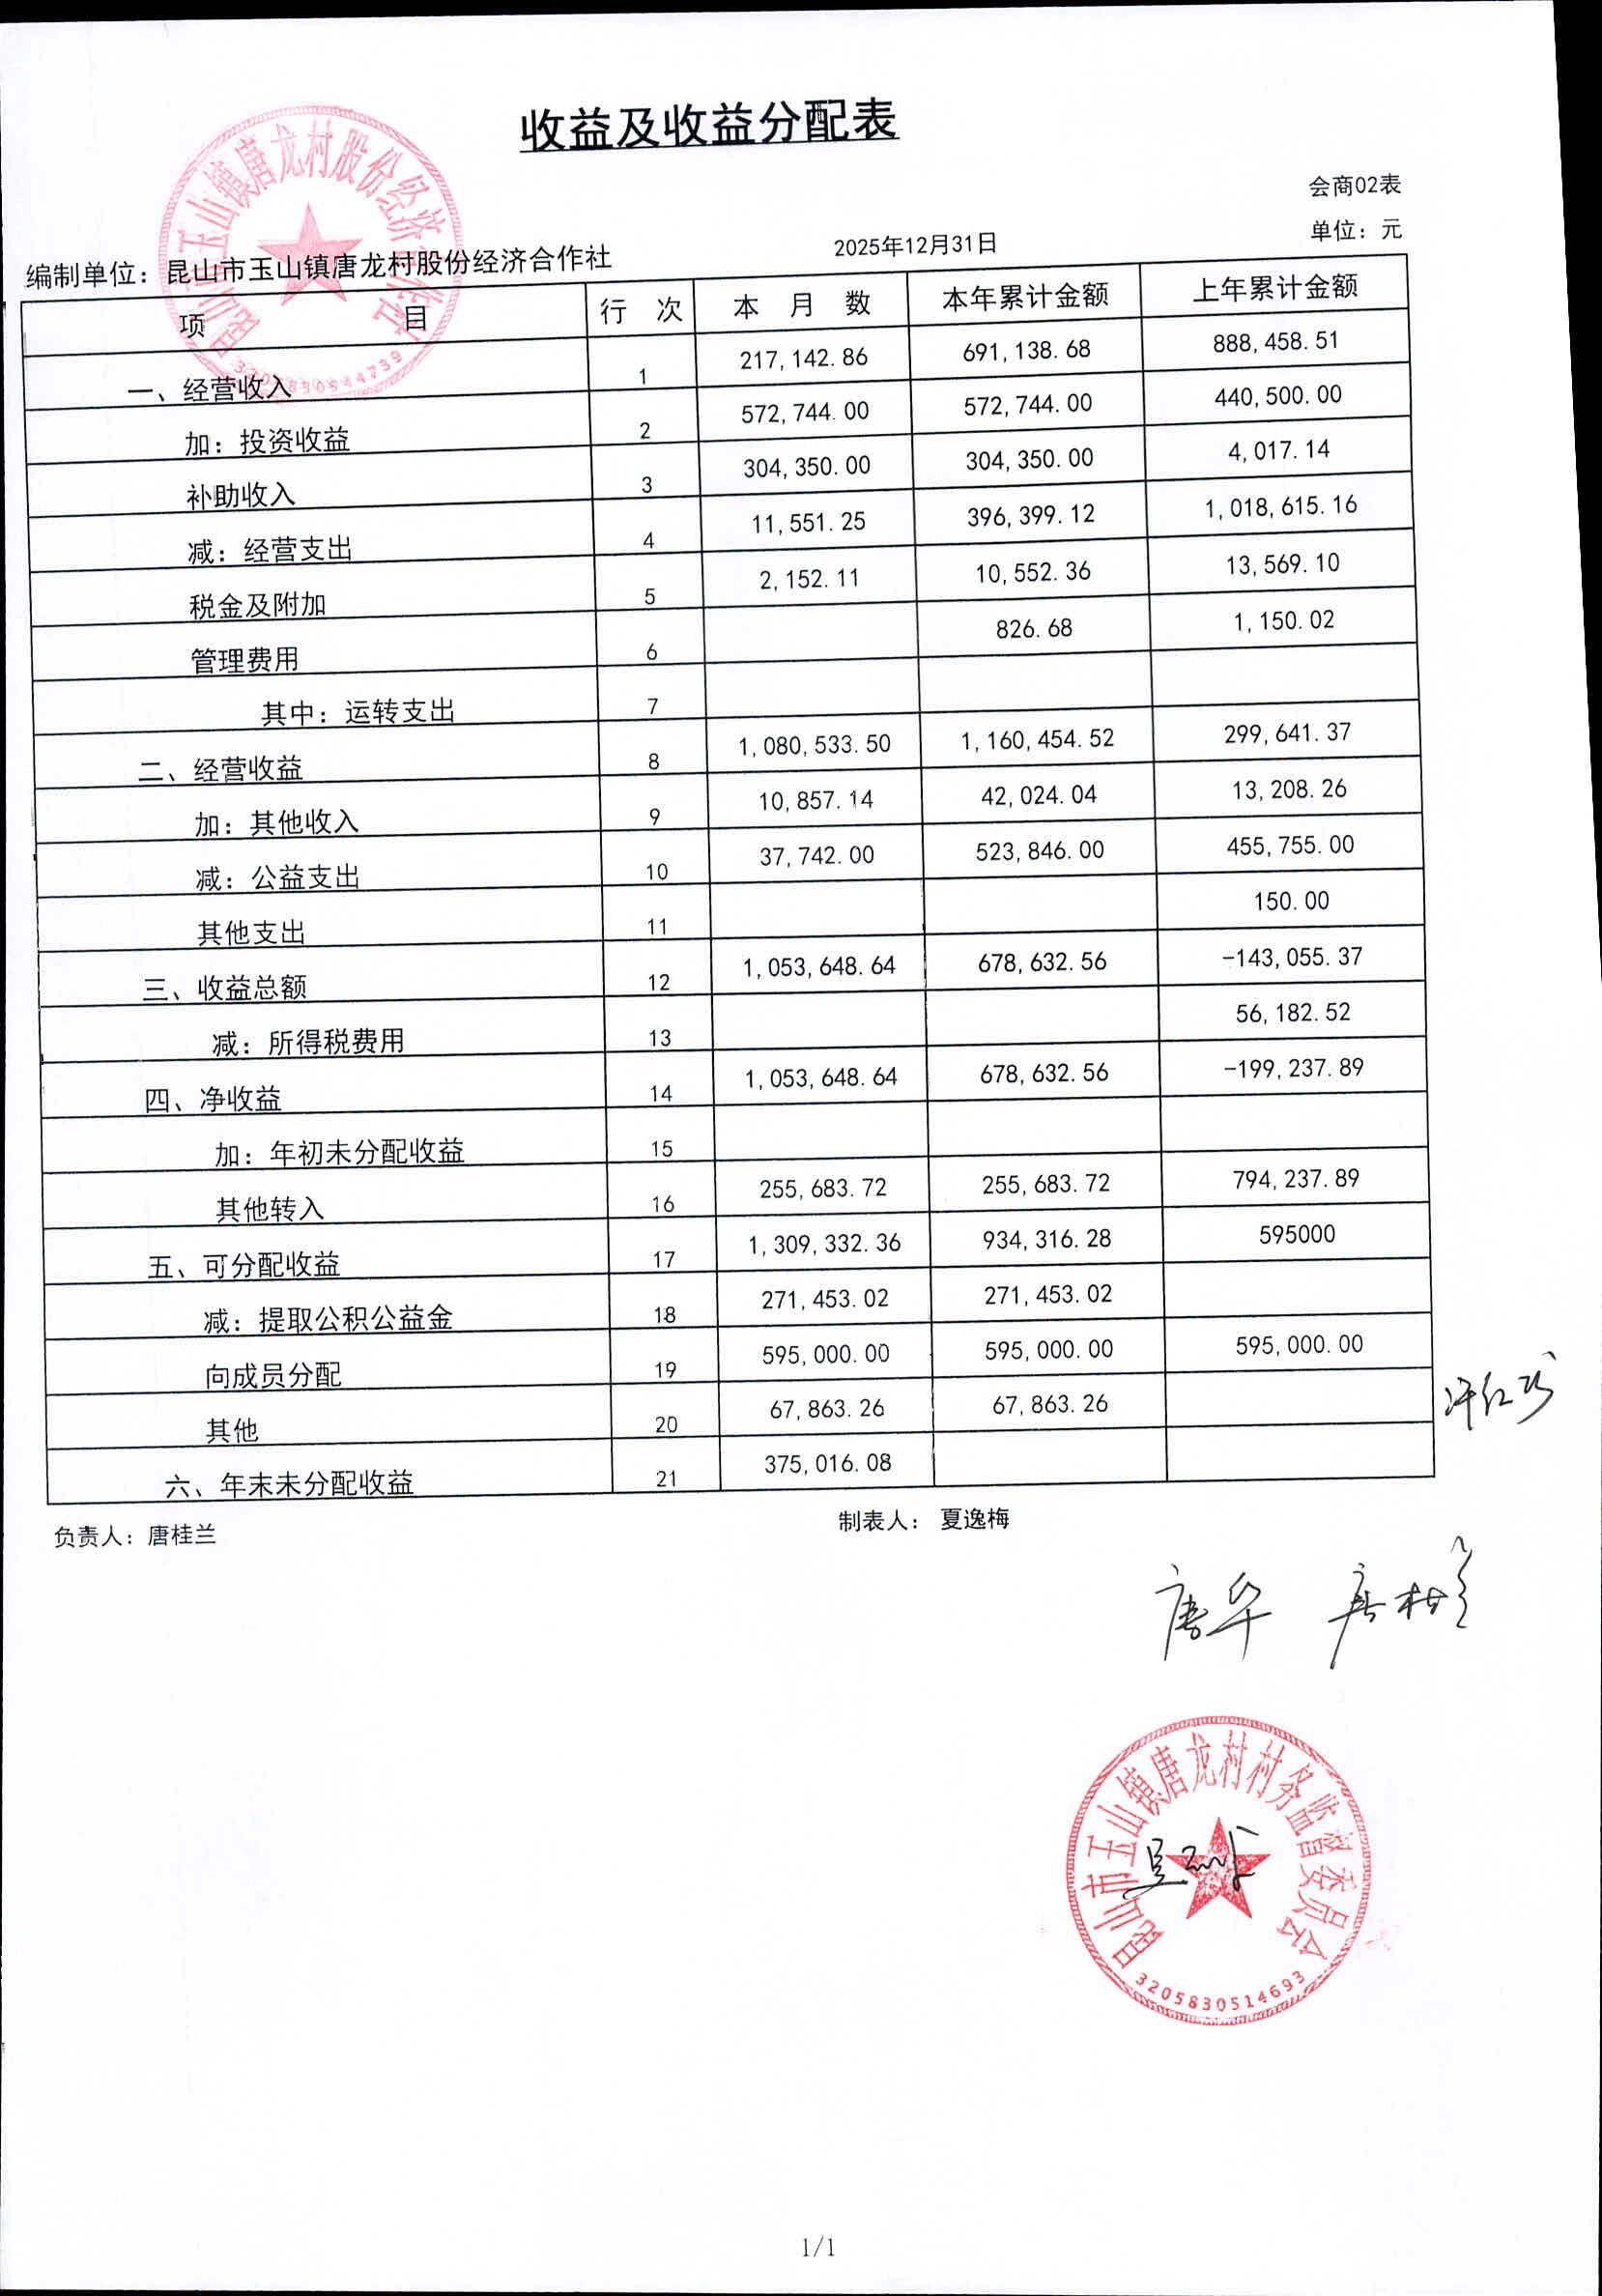 收益及收益分配表
会商02表
编制单位：昆山市玉山镇唐龙村股份经济合作社 2025年12月31日 单位：元
项 目 行 次 本 月 数 本年累计金额 上年累计金额
一、经营收入 1 217,142.86 691,138.68 888,458.51
加：投资收益 2 572,744.00 572,744.00 440,500.00
补助收入 3 304,350.00 304,350.00 4,017.14
减：经营支出 4 11,551.25 396,399.12 1,018,615.16
税金及附加 5 2,152.11 10,552.36 13,569.10
管理费用 6 826.68 1,150.02
其中：运转支出 7
二、经营收益 8 1,080,533.50 1,160,454.52 299,641.37
加：其他收入 9 10,857.14 42,024.04 13,208.26
减：公益支出 10 37,742.00 523,846.00 455,755.00
其他支出 11 150.00
三、收益总额 12 1,053,648.64 678,632.56 -143,055.37
减：所得税费用 13 56,182.52
四、净收益 14 1,053,648.64 678,632.56 -199,237.89
加：年初未分配收益 15
其他转入 16 255,683.72 255,683.72 794,237.89
五、可分配收益 17 1,309,332.36 934,316.28 595000
减：提取公积公益金 18 271,453.02 271,453.02
向成员分配 19 595,000.00 595,000.00 595,000.00
其他 20 67,863.26 67,863.26
六、年末未分配收益 21 375,016.08
负责人：唐桂兰 制表人： 夏逸梅
唐华 唐桂兰
昆山市玉山镇唐龙村股份经济合作社
昆山市玉山镇唐龙村村务监督委员会
3205830514693
1/1